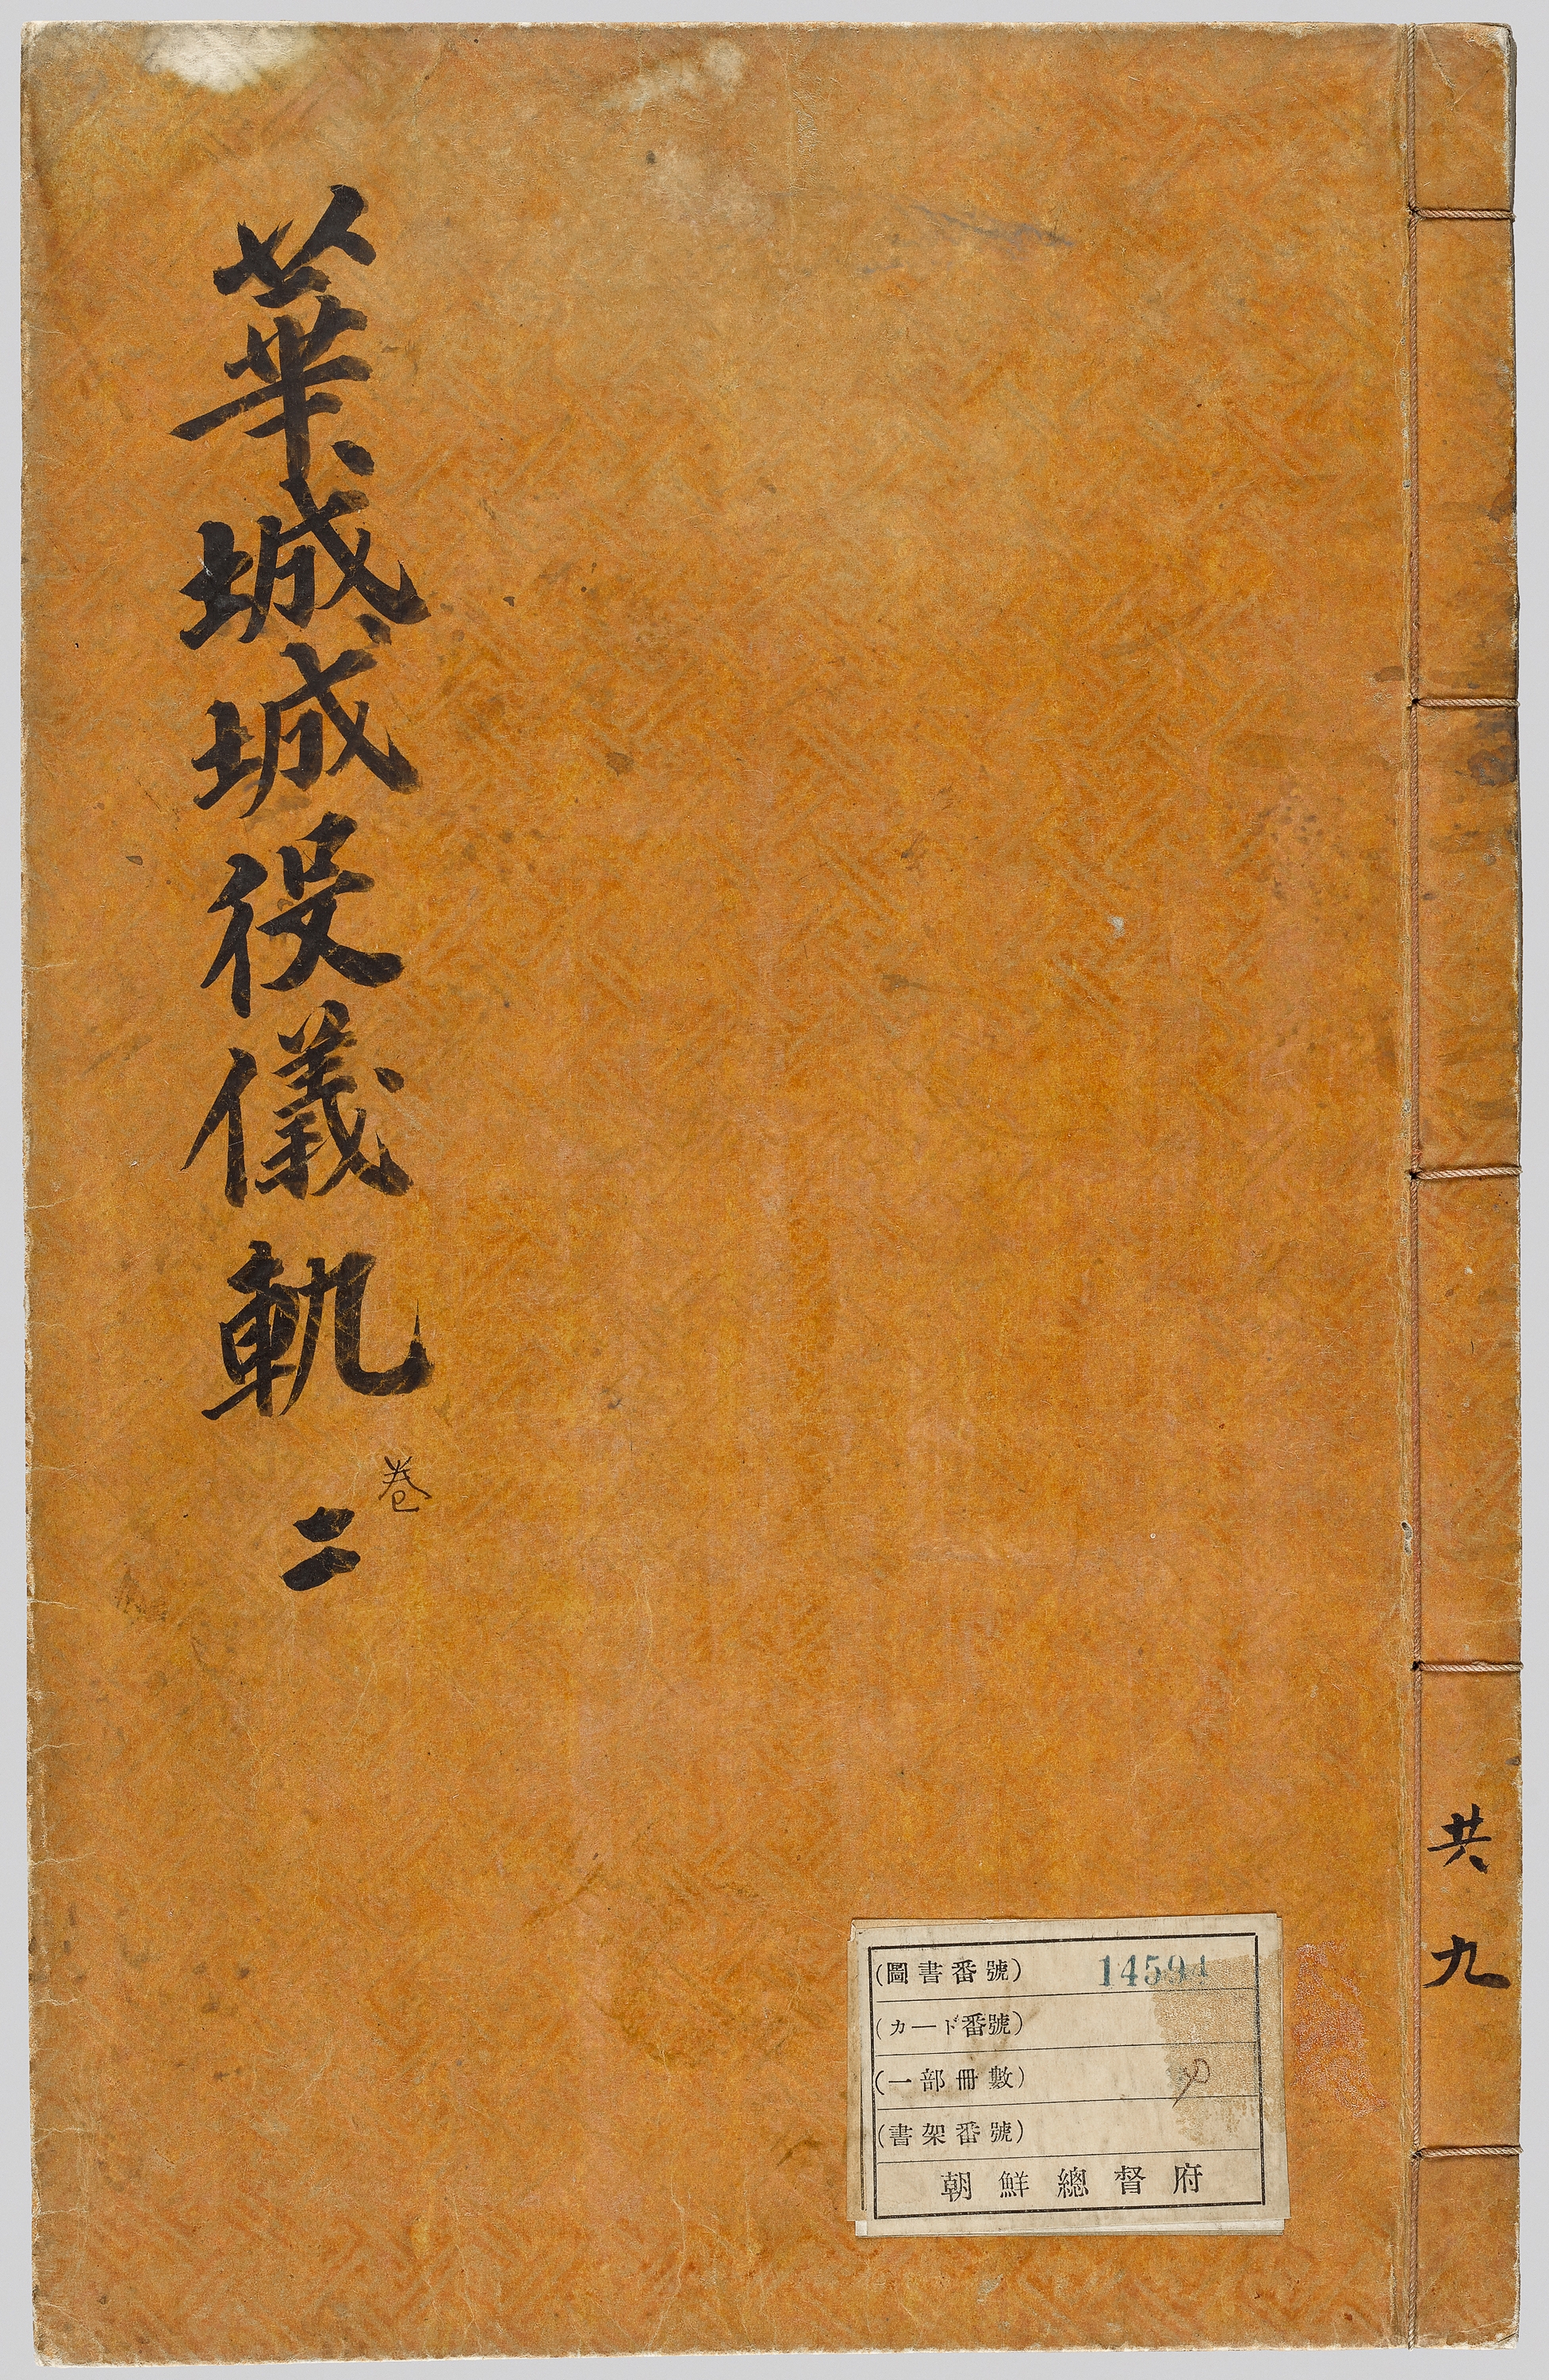 華城城役儀軌 二
卷
共九
(圖書番號) 14594
(カード番號)
(一部冊數)
(書架番號)
朝鮮總督府